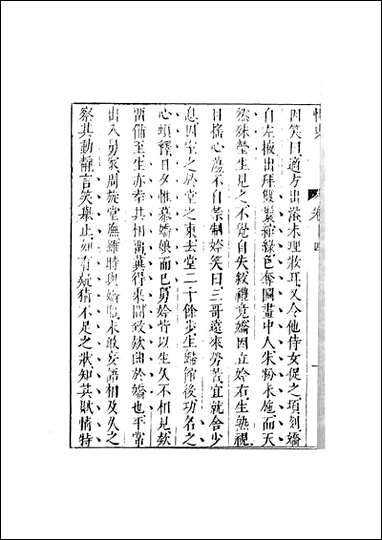 情史
卷　四
因笑曰適方出浴未理妝耳又令他侍女促之頃刻嬌
自左掖出拜雙鬟綰綠色奪圖畫中人朱粉未施而天
然殊瑩生見之不覺自失敘禮竟嬌因立妗右生熟視
目搖心蕩不自禁制妗笑曰三哥遠來勞苦宜就舍少
息因室之於堂之東去堂二十餘步生歸館後功名之
心頓釋日夕惟慕嬌娘而已舅妗皆以生久不相見款
畱備至生亦幸其相畱冀得乘間致款曲於嬌也平常
出入舅家周旋堂廡雖時與嬌晤未敢妄語相及久之
察其動靜言笑舉止則有疑猜不足之狀知其賦情特